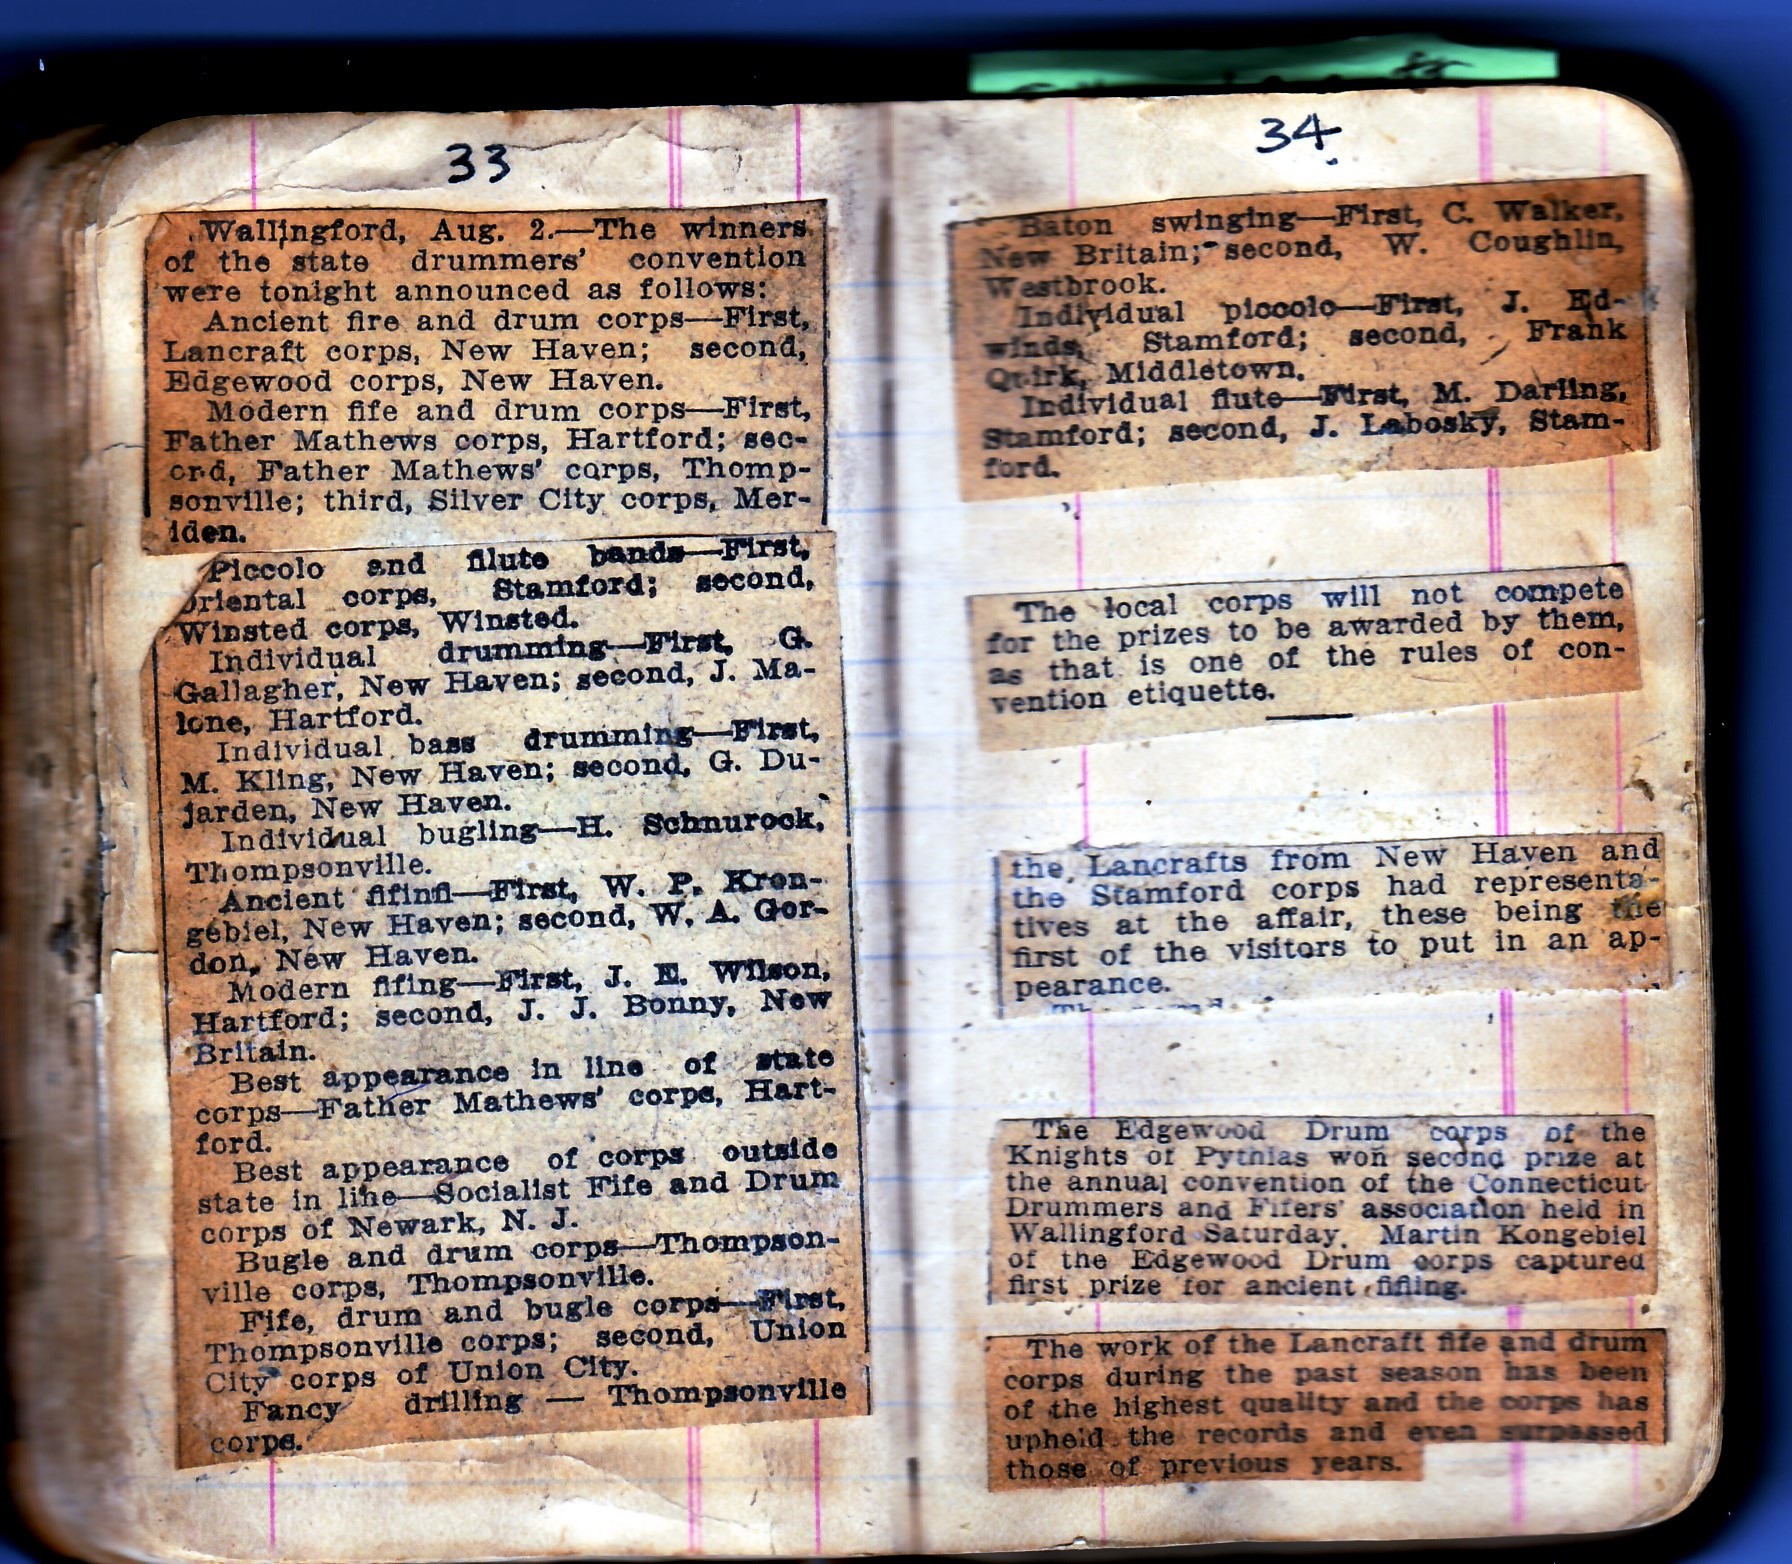 33
Wallingford, Aug. 2.—The winners
of the state drummers' convention
were tonight announced as follows:
Ancient fire and drum corps—First,
Lancraft corps, New Haven; second,
Edgewood corps, New Haven.
Modern fife and drum corps—First,
Father Mathews corps, Hartford; sec-
ond, Father Mathews' corps, Thomp-
sonville; third, Silver City corps, Mer-
iden.
Piccolo and filute bands—First,
Oriental corps, Stamford; second,
Winsted corps, Winsted.
Individual drumming—First, G.
Gallagher, New Haven; second, J. Ma-
lone, Hartford.
Individual bass drumming—First,
M. Kling, New Haven; second, G. Du-
jarden, New Haven.
Individual bugling—H. Schnurock,
Thompsonville.
Ancient fifinfi—First, W. P. Kron-
gebiel, New Haven; second, W. A. Gor-
don, New Haven.
Modern fifing—First, J. E. Wilson,
Hartford; second, J. J. Bonny, New
Britain.
Best appearance in line of state
corps—Father Mathews' corps, Hart-
ford.
Best appearance of corps outside
state in line—Socialist Fife and Drum
corps of Newark, N. J.
Bugle and drum corps—Thompson-
ville corps, Thompsonville.
Fife, drum and bugle corps—First,
Thompsonville corps; second, Union
City corps of Union City.
Fancy drilling — Thompsonville
corps.
34
Baton swinging—First, C. Walker,
New Britain; second, W. Coughlin,
Westbrook.
Individual piccolo—First, J. Ed-
winds, Stamford; second, Frank
Quirk, Middletown.
Individual flute—First, M. Darling,
Stamford; second, J. Labosky, Stam-
ford.
The local corps will not compete
for the prizes to be awarded by them,
as that is one of the rules of con-
vention etiquette.
the Lancrafts from New Haven and
the Stamford corps had representa-
tives at the affair, these being the
first of the visitors to put in an ap-
pearance.
The Edgewood Drum corps of the
Knights of Pythias won second prize at
the annual convention of the Connecticut
Drummers and Fifers' association held in
Wallingford Saturday. Martin Kongebiel
of the Edgewood Drum corps captured
first prize for ancient fifiing.
The work of the Lancraft fife and drum
corps during the past season has been
of the highest quality and the corps has
upheld the records and even surpassed
those of previous years.